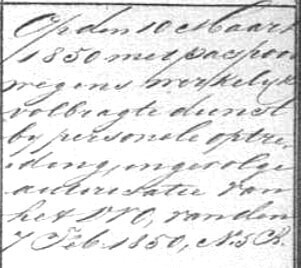 Op den 10 Maart
1850 met paspoort
wegens werkelijk
volbragte dienst
by personele optre,
ding, ingevolge
autorisatie van
het DVO, van den
7 Feb. 1850, N. 5 B.